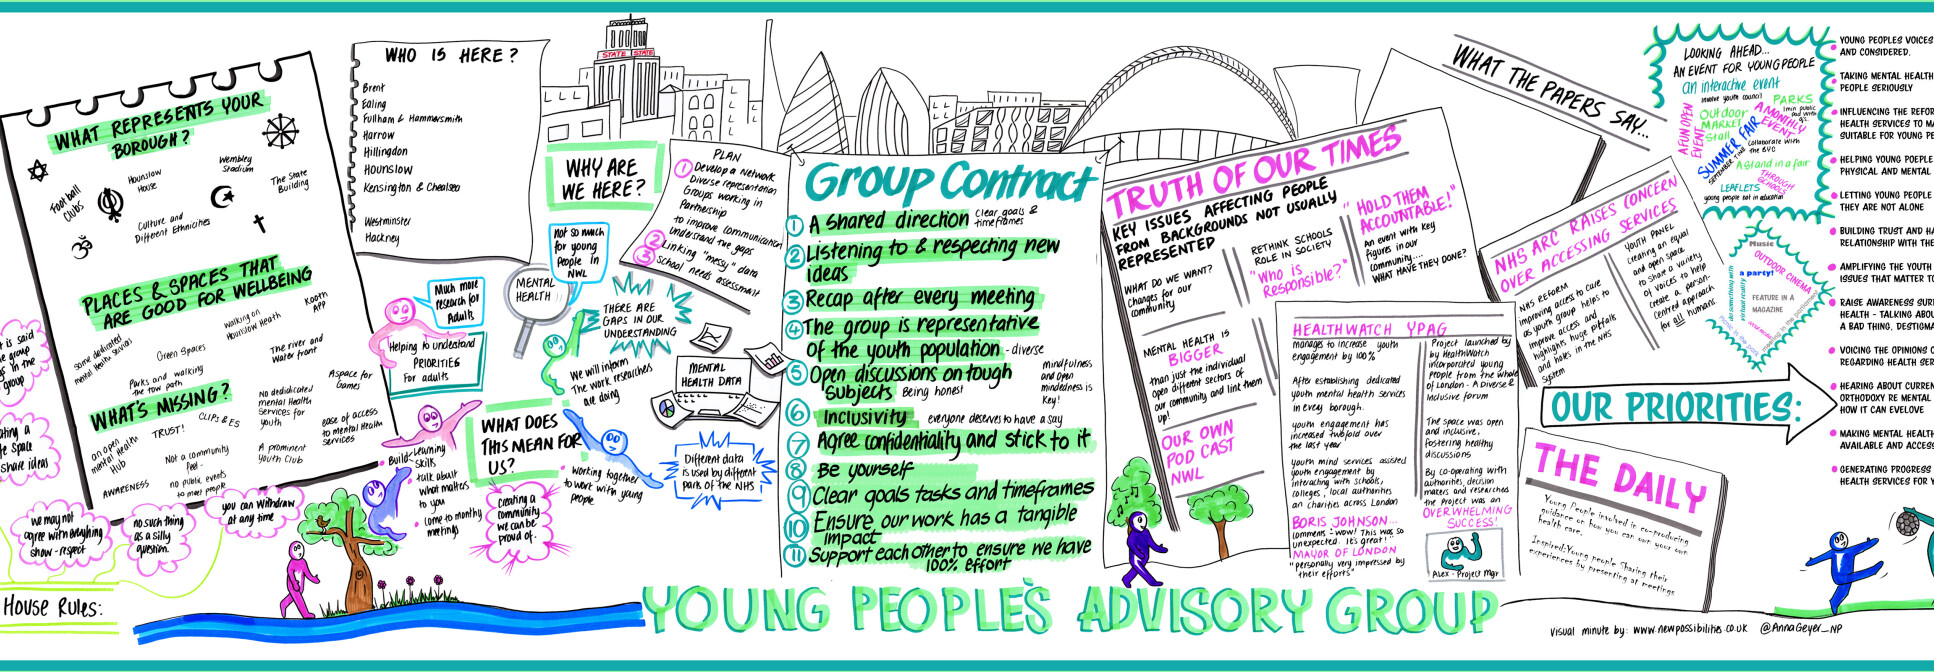 WHAT REPRESENTS YOUR
BOROUGH?
Football
Clubs
Hounslow
House
Wembley
Stadium
The State
Building
Culture and
Different Ethnicities
PLACES & SPACES THAT
ARE GOOD FOR WELLBEING
some dedicated
mental Health services
Green Spaces
Walking on
Hounslow Heath
Kooth
APP
Parks and walking
the tow path
The river and
Water front
WHAT'S MISSING?
an open
mental Health
Hub
TRUST!
CLIPS & ES
No dedicated
mental Health
Services for
youth
A space for
Games
ease of access
to mental Health
services
AWARENESS
Not a community
feel -
no public events
to meet people
A prominent
Youth Club
t is said
e group
s in the
group
ating a
fe space
share ideas
we may not
agree with everything
show - respect
no such thing
as a silly
question.
you can withdraw
at any time
House Rules:
WHO IS HERE?
Brent
Ealing
Fullham & Hammersmith
Harrow
Hillingdon
Hounslow
Kensington & Chealsea
Westminster
Hackney
STATE STATE
WHY ARE
WE HERE?
PLAN
1 Develop a Network
Diverse representation
Groups working in
Partnership
to improve communication
2 understand the gaps
Linking "messy" data
3 School needs assessment
Not so much
for young
People in
NWL
MENTAL
HEALTH
Much more
research for
Adults
Helping to understand
PRIORITIES
For adults
THERE ARE
GAPS IN OUR
UNDERSTANDING
We will inform
The work researchers
are doing
MENTAL
HEALTH DATA
WHAT DOES
THIS MEAN FOR
US?
Build Learning
skills
talk about
what matters
to you
come to monthly
meetings
creating a
community
we can be
proud of.
Working together
to work with young
people
Different data
is used by different
part of the NHS
Group Contract
1 A shared direction Clear goals &
timeframes
2 Listening to & respecting new
ideas
3 Recap after every meeting
4 The group is representative
of the youth population - diverse
5 Open discussions on tough
Subjects Being honest
mindfulness
and open
mindedness is
Key!
6 Inclusivity everyone deserves to have a say
7 Agree confidentiality and stick to it
8 Be yourself
9 Clear goals tasks and timeframes
10 Ensure our work has a tangible
impact
11 Support each other to ensure we have
100% effort
TRUTH OF OUR TIMES
KEY ISSUES AFFECTING PEOPLE
FROM BACKGROUNDS NOT USUALLY
REPRESENTED
WHAT DO WE WANT?
Changes for our
community
RETHINK SCHOOLS
ROLE IN SOCIETY
"Who is
Responsible?"
"HOLD THEM
ACCOUNTABLE!"
An event with key
figures in our
community....
WHAT HAVE THEY DONE?
MENTAL HEALTH IS
BIGGER
than just the individual
open different sectors of
our community and link them
up!
OUR OWN
POD CAST
NWL
WHAT THE PAPERS SAY...
NHS ARC RAISES CONCERN
OVER ACCESSING SERVICES
NHS REFORM
improving access to care
as youth group helps to
improve access and
highlights huge pitfalls
and holes in the NHS
system
YOUTH PANEL
Creating an equal
and open space
to share a variety
of voices to help
create a person-
Centred approach
for all humans
HEALTHWATCH YPAG
manages to increase youth
engagement by 100%
After establishing dedicated
youth mental health services
in every borough.
youth engagement has
increased twofold over
the last year
youth mind services assisted
youth engagement by
interacting with schools,
colleges, local authorities
an Charities across London
BORIS JOHNSON...
comments - wow! This was so
unexpected. It's great!"
MAYOR OF LONDON
"personally very impressed by
their efforts"
Project launched by
by Healthwatch
incorporated young
people from the whole
of London - A diverse &
Inclusive forum
The space was open
and inclusive,
fostering healthy
discussions
By co-operating with
authorities, decision
makers and researchers
the Project was an
OVERWHELMING
SUCCESS!
Alex - Project Mgr
LOOKING AHEAD...
AN EVENT FOR YOUNG PEOPLE
an interactive event
involve youth council
PARKS
A FUN OPEN
EVENT
Outdoor
MARKET
Stall
A MONTHLY
EVENT!
SUMMER FAIR
Collaborate with
the BVC
A stand in a fair
LEAFLETS
THROUGH
SCHOOLS
young people not in education
Music
OUTDOOR CINEMA
a party!
do something with
virtual reality
FEATURE IN A
MAGAZINE
OUR PRIORITIES:
YOUNG PEOPLES VOICES
AND CONSIDERED.
TAKING MENTAL HEALTH
PEOPLE SERIOUSLY
INFLUENCING THE REFOR
HEALTH SERVICES TO MA
SUITABLE FOR YOUNG PE
HELPING YOUNG POEPLE
PHYSICAL AND MENTAL
LETTING YOUNG PEOPLE
THEY ARE NOT ALONE
BUILDING TRUST AND HA
RELATIONSHIP WITH THE
AMPLIFYING THE YOUTH
ISSUES THAT MATTER TO
RAISE AWARENESS SUR
HEALTH - TALKING ABOU
A BAD THING, DESTIGMA
VOICING THE OPINIONS O
REGARDING HEALTH SER
HEARING ABOUT CURREN
ORTHODOXY RE MENTAL
HOW IT CAN EVELOVE
MAKING MENTAL HEALTH
AVAILABLE AND ACCESS
GENERATING PROGRESS
HEALTH SERVICES FOR Y
THE DAILY
Young People involved in co-producing
guidance on how you can own your own
health care.
Inspired: Young people Sharing their
experiences by presenting at meetings
YOUNG PEOPLE'S ADVISORY GROUP
visual minute by: www.newpossibilities.co.uk @AnnaGeyer_NP